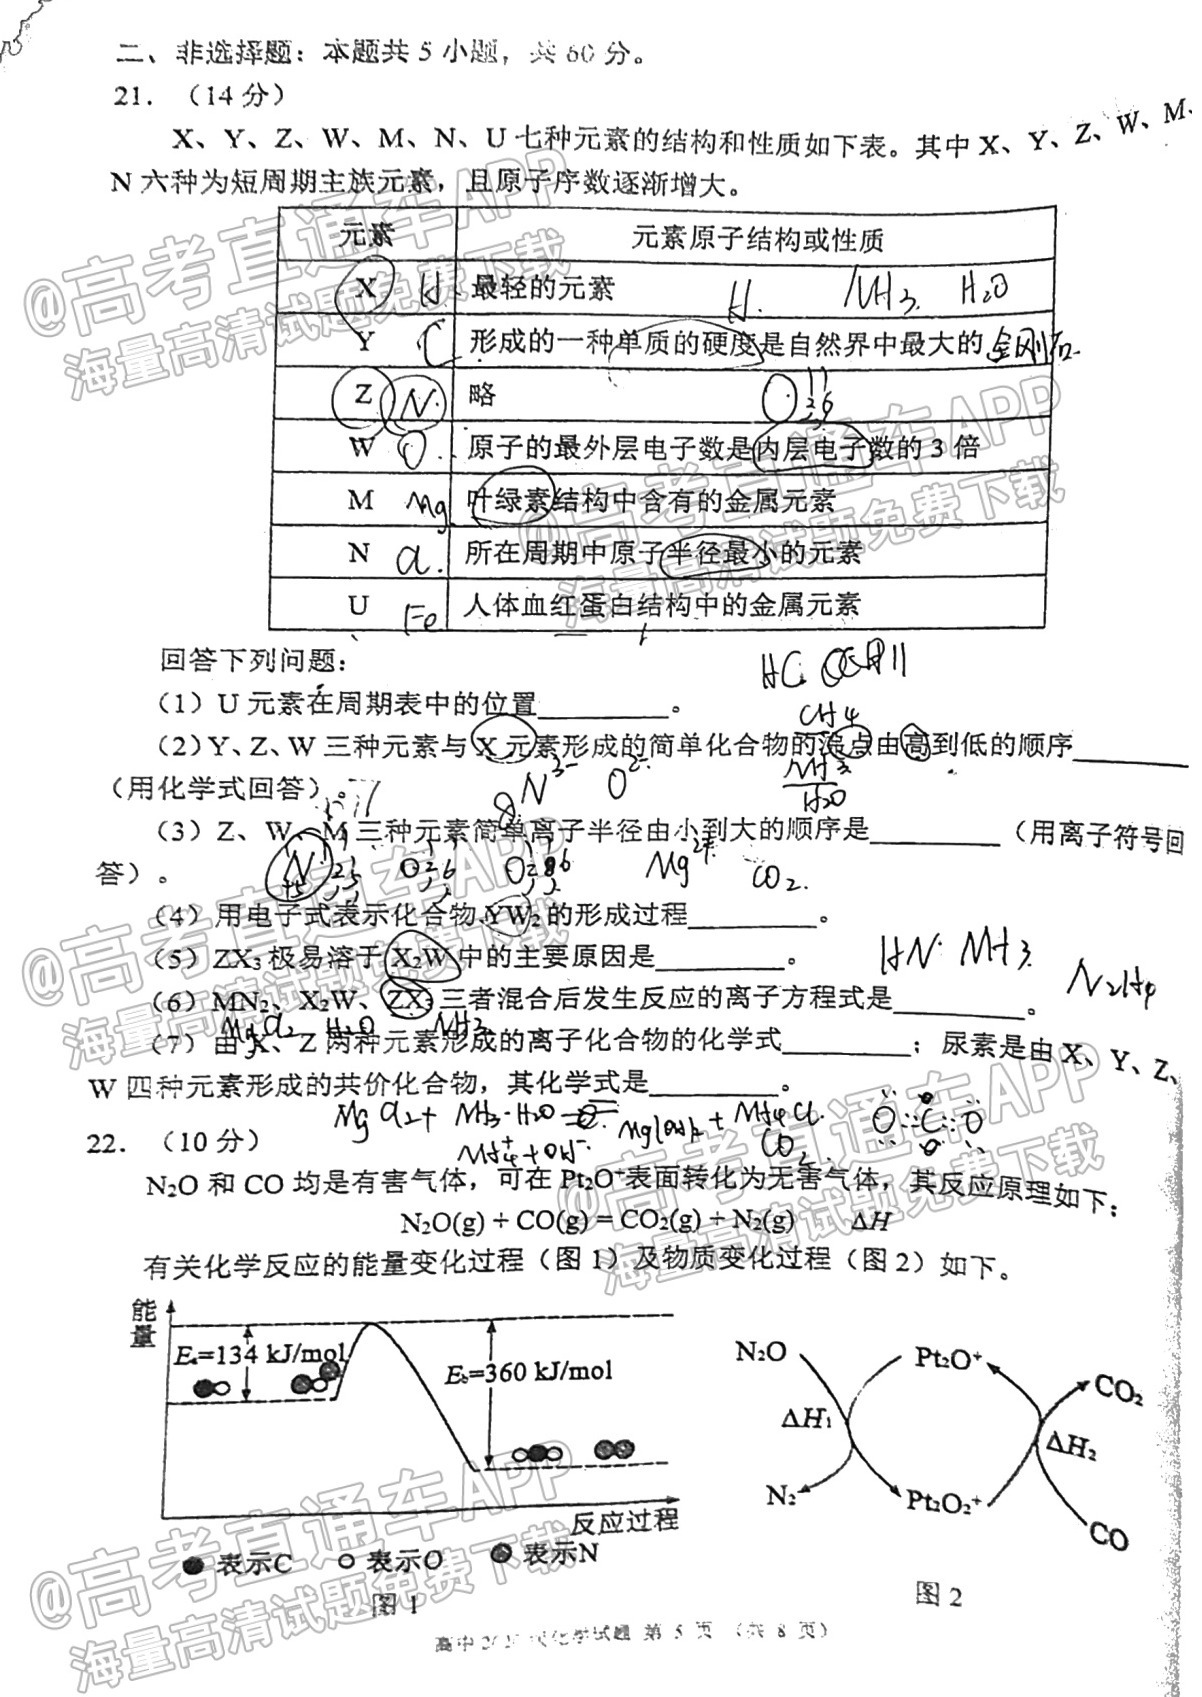 二、非选择题：本题共 5 小题，共 60 分。
21．（14 分）
X、Y、Z、W、M、N、U 七种元素的结构和性质如下表。其中 X、Y、Z、W、M、
N 六种为短周期主族元素，且原子序数逐渐增大。
元素 元素原子结构或性质
X H 最轻的元素 H. NH3. H2O
Y C 形成的一种单质的硬度是自然界中最大的 金刚石
Z N 略 O
W O 原子的最外层电子数是内层电子数的 3 倍
M Mg 叶绿素结构中含有的金属元素
N Cl 所在周期中原子半径最小的元素
U Fe 人体血红蛋白结构中的金属元素
回答下列问题：
（1）U 元素在周期表中的位置________。
CH4
（2）Y、Z、W 三种元素与 X 元素形成的简单化合物的沸点由高到低的顺序________
NH3
（用化学式回答）。
N3- O2- H2O
（3）Z、W、M 三种元素简单离子半径由小到大的顺序是________（用离子符号回
答）。
N O26 O286 Mg2+ CO2.
（4）用电子式表示化合物 YW2 的形成过程________。
HN. NH3. N2H4
（5）ZX3 极易溶于 X2W 中的主要原因是________。
（6）MN2、X2W、ZX3 三者混合后发生反应的离子方程式是________。
MgCl2 H2O NH3
（7）由 X、Z 两种元素形成的离子化合物的化学式________；尿素是由 X、Y、Z、
W 四种元素形成的共价化合物，其化学式是________。
MgCl2+ NH3·H2O = Mg(OH)2 + NH4Cl.
NH4+ + OH- CO2
22．（10 分）
N2O 和 CO 均是有害气体，可在 Pt2O+表面转化为无害气体，其反应原理如下：
N2O(g) + CO(g) = CO2(g) + N2(g) ΔH
有关化学反应的能量变化过程（图 1）及物质变化过程（图 2）如下。
能量
Ea=134 kJ/mol
Eb=360 kJ/mol
反应过程
表示C 表示O 表示N
图 1
N2O Pt2O+ CO2
ΔH1 ΔH2
N2 Pt2O2+ CO
图 2
化学试题 第 5 页 （共 8 页）
@高考直通车APP
海量高清试题免费下载
@高考直通车APP
海量高清试题免费下载
@高考直通车APP
海量高清试题免费下载
@高考直通车APP
海量高清试题免费下载
@高考直通车APP
海量高清试题免费下载